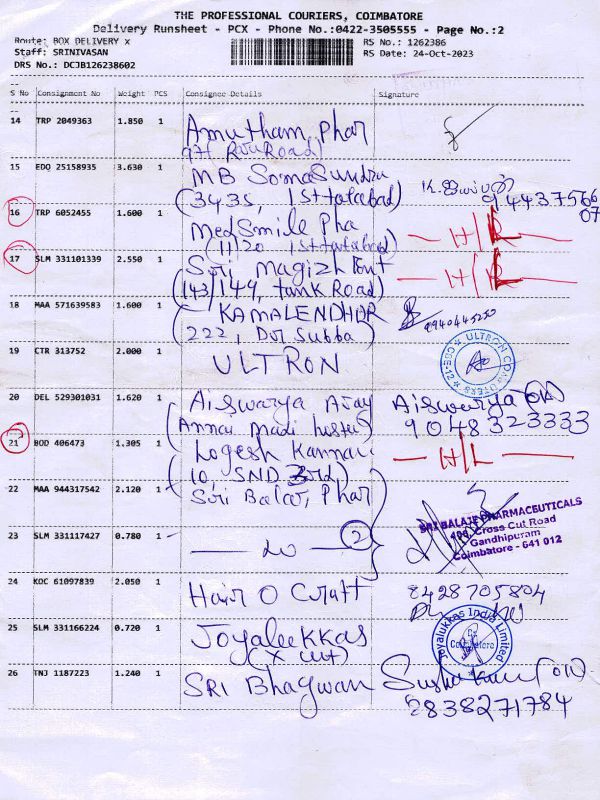 THE PROFESSIONAL COURIERS, COIMBATORE
Delivery Runsheet - PCX - Phone No.:0422-3505555 - Page No.:2
Route: BOX DELIVERY x RS No.: 1262386
Staff: SRINIVASAN RS Date: 24-Oct-2023
DRS No.: DCJB126238602
S No Consignment No Weight PCS Consignee Details Signature
14 TRP 2049363 1.850 1 Amutham, Phar
15 EDO 25158935 3.630 1 MB SomaSundra
(3435, 1st tatabad)
16 TRP 6052455 1.600 1 MedSmile Pha
(11)20 1st tatabad)
17 SLM 331101339 2.550 1 Sri Magizh Ent
(143/149, tank Road)
18 MAA 571639583 1.600 1 KAMALENDHDR
(222, Dr Subba)
19 CTR 313752 2.000 1 ULTRON
ULTRON
20 DEL 529301031 1.620 1 Aiswarya Ajay Aiswarya
9048323333
21 BOD 406473 1.305 1 Logesh Kannan
(10, SND
22 MAA 944317542 2.120 1 Siri Balaj, Phar
SRI BALAJE PHARMACEUTICALS
Cross Cut Road
Gandhipuram
Coimbatore - 641 012
23 SLM 331117427 0.780 1 2
24 KOC 61097839 2.050 1 Hair O Craft 8428705804
25 SLM 331166224 0.720 1 Joyaleekkas
(x cut)
Joyalukkas India Limited
Coimbatore
26 TNJ 1187223 1.240 1 SRI Bhagwan
8838271784